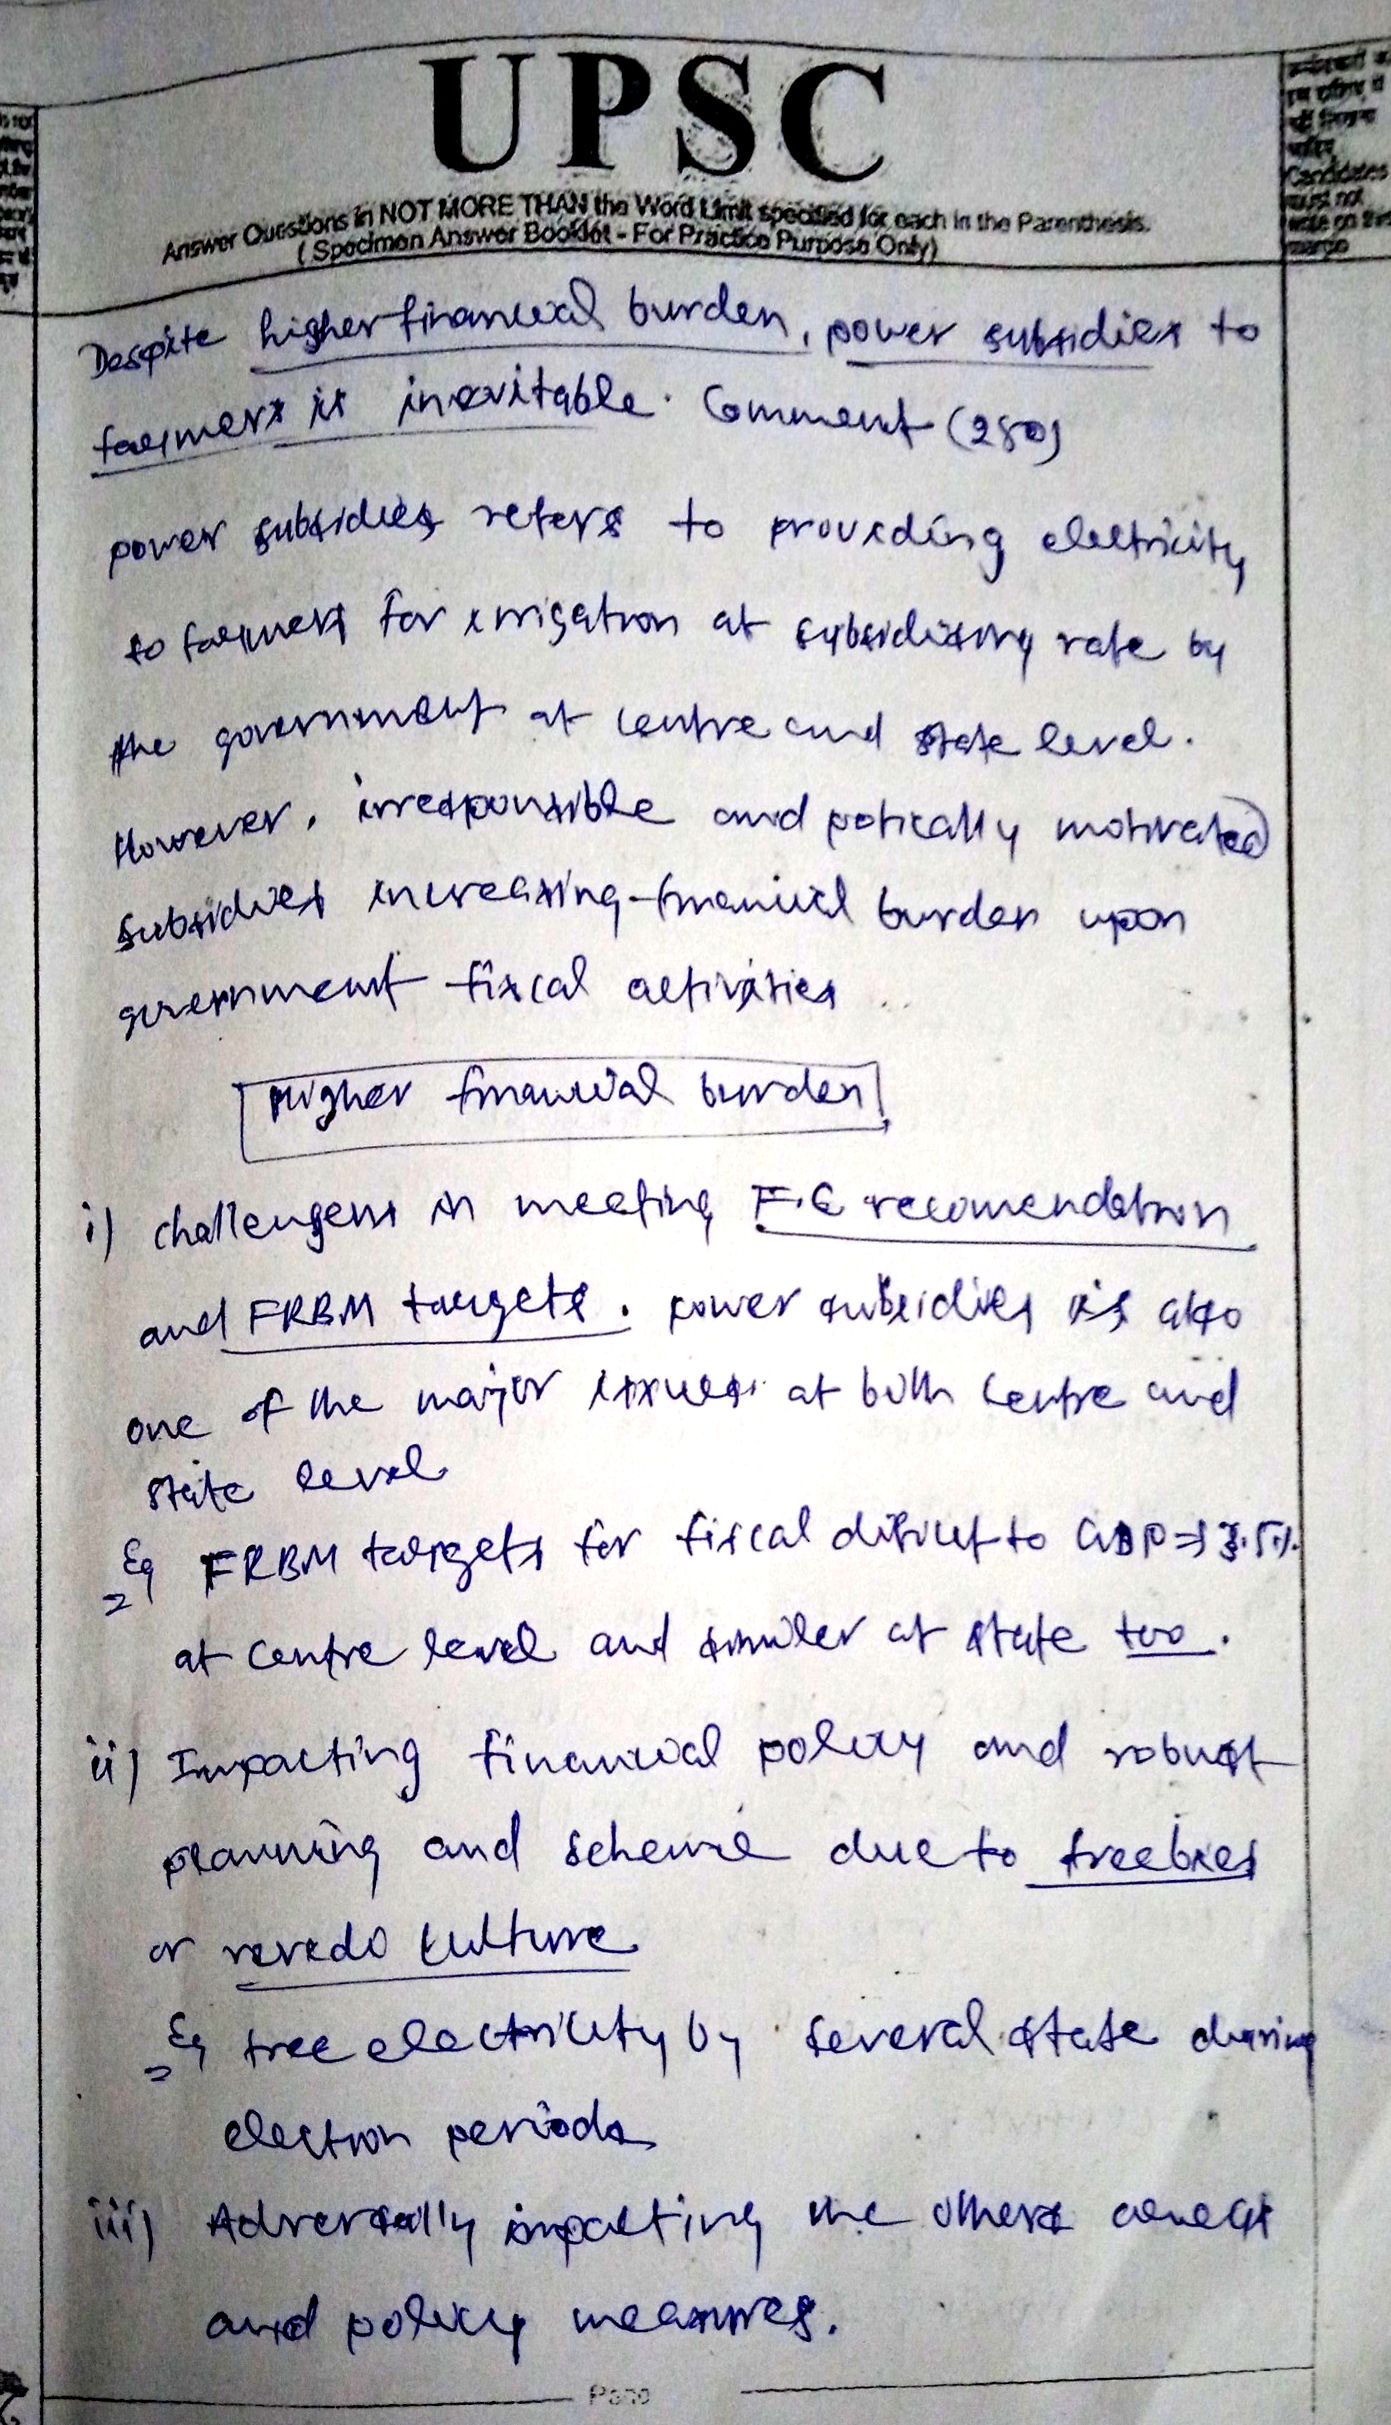 UPSC
Answer Questions in NOT MORE THAN the Word Limit specified for each in the Parenthesis.
( Specimen Answer Booklet - For Practice Purpose Only)
Candidates
must not
write on this
margin
Despite higher financial burden, power subsidies to
farmers is inevitable. Comment (250)
power subsidies refers to providing electricity
to farmers for irrigation at subsidising rate by
the government at centre and state level.
However, irresponsible and potically motivated
subsidies increasing financial burden upon
government fiscal activities
Higher financial burden
i) challengens in meeting F.C recomendation
and FRBM targets. power subsidies is also
one of the major issues at both centre and
state level
Eg FRBM targets for fiscal deficit to GDP => 3.5%
at centre level and similer at state too.
ii) Impacting financial policy and robust
planning and scheme due to freebies
or revedo culture
Eg free electricity by several state during
election periods
iii) Adversally impacting the others areas
and policy measures.
Page